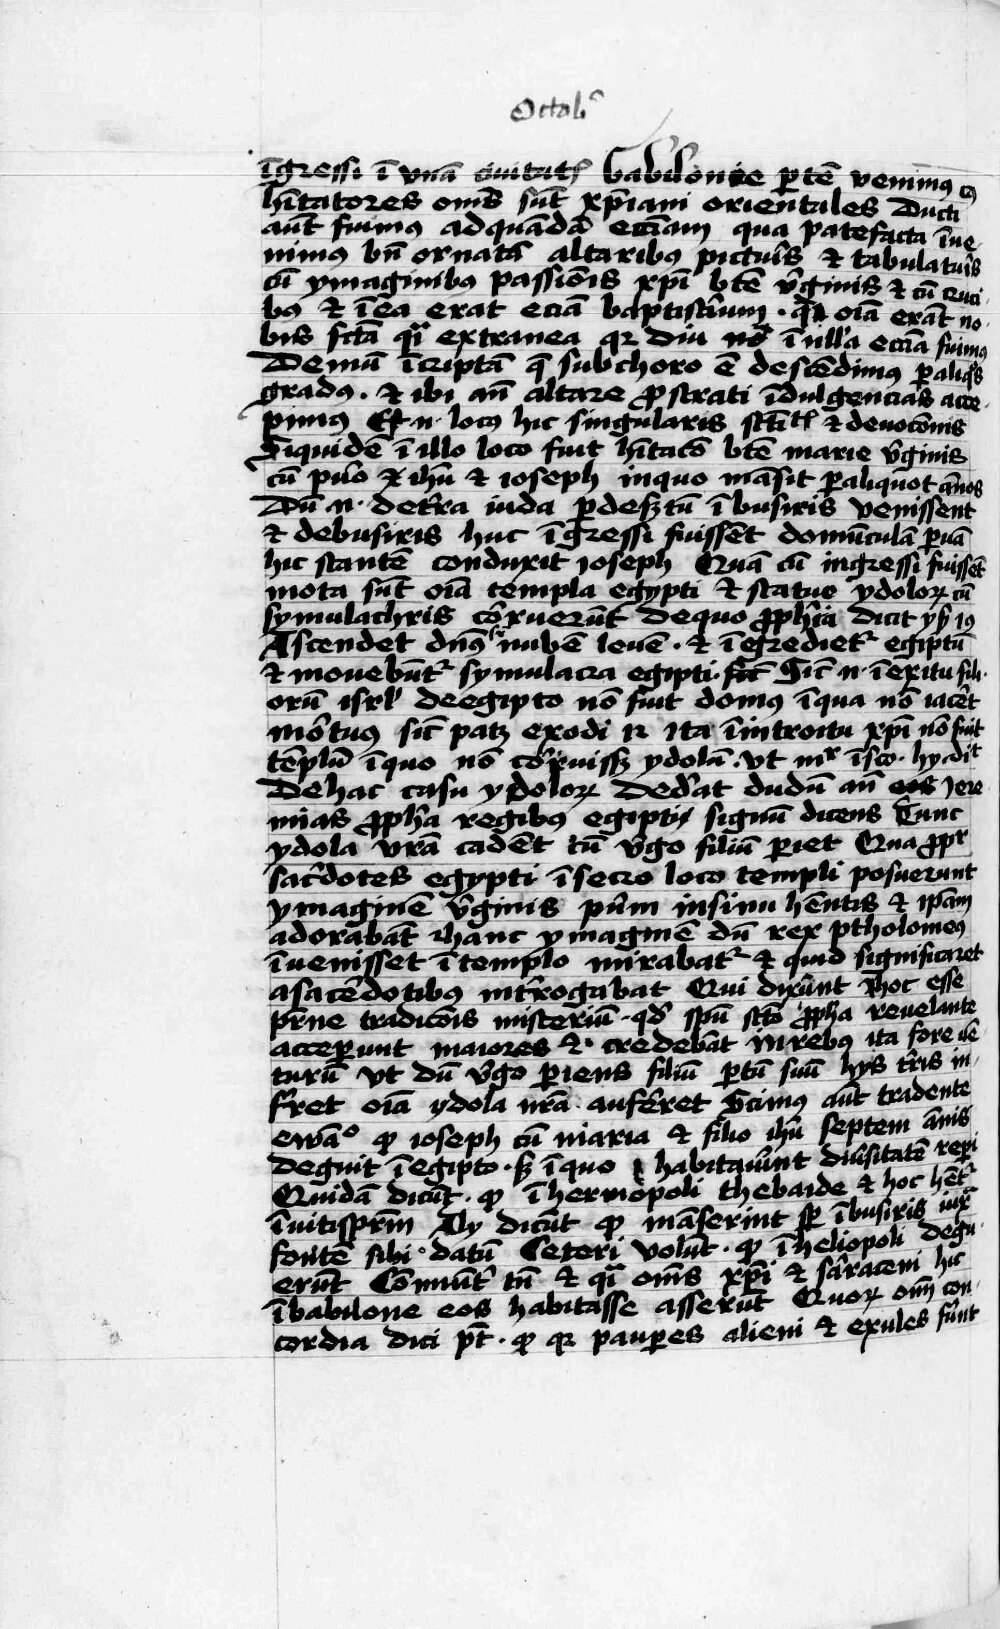 Octob᷑
īgressi ī vnā ciuitatꝭ babilonie ꝑtē venimꝯ cꝯ
hītatores om̄s sūt xp̄iani orientales Ducti
aūt fuimꝯ adquandā eccīam qua patefacta īue-
nimus bn̄ ornatā altaribꝯ pictur̄is & tabulatur̄is
cū ymaginibꝯ passiōis xp̄i btē v̄ginis & cū cruci
bꝯ & ī ea erat eciā baptistīum · que oīa erāt no-
bis fctā qͣi extranea qꝛ diu nō ī ulla eccīa fuimꝯ
Demū ī criptā q̄ sub choro ē descēdimꝯ ꝑ aliqͦs
gradꝯ · & ibi an̄ altare ꝓstrati īdulgencias acce-
pimus Est · n · locꝯ hic singularis sct̄itatꝭ & deuocōnis
Siquidē ī illo loco fuit hītacō btē marie v̄ginis
cū puō & ihū & ioseph inquo māsit ꝑ aliquot ānos
Dū · n · de tr̄a iuda ꝑ desꝫtū ī busiris venissent
& debusiris huc īgressi fuissēt domūculā ꝑuā
hic stantē conduxit ioseph Quā cū ingressi fuissēt
mota sūt oīa templa egypti & statue ydoloꝝ cū
symulachris cōrruerūt De quo ꝓphīa dicit ysa 19
Ascendet dn̄s suꝑ nubē leuē · & īgredietᷣ egiptū
& mouebūtᷣ symulacra egipti · Sic̄ · n · ī exitu fili-
orū isrl̓ de egipto nō fuit domꝯ ī qua nō iacēt
mōtuus sic̄ patꝫ exodi 12 Ita ī introitu xp̄i nō fuit
tēplū ī quo nō cōrruissꝫ ydolū · vt mr̄ ī sco · hy · dit
De hac casu ydoloꝝ ded̄at dudū an̄ eos Jere
mias ꝓpha regibꝯ egipti signū dicens Tunc
ydola vrā cadēt cū v̄go filiū ꝑiet Qua ꝓpt̄
sac̄dotes egypti ī secro loco templi posuerunt
ymaginē v̄ginis pūm in sinu hentis & ip̄am
adorabāt & hanc ymaginē dū rex ptholomeꝯ
īuenisset ī templo mirabatᷣ & quid significaret
a sac̄dotibꝯ int̄rogabat Qui dix̄unt hoc esse
pr̄ne tradicōis misteriū · qd̄ sp̄ū sc̄tō ꝓpha reuelante
acceꝑunt maiores & · credebāt in rebꝯ ita fore vē
turū vt dū v̄go ꝑiens filiū ꝑtū suū hys tr̄is in-
fret oīa ydola nrā · auferet Scimꝯ aūt tradente
ewāᵒ ꝙ ioseph cū maria & filio ihū septem ānis
deguit ī egipto · sꝫ ī quo habitau̅nt diu̅sitatē reꝑi
Quidā dicūt · ꝙ ī hermopoli thebaide & hoc hētᷣ
ī vitispr̄m Aly dicūt ꝙ māserint sꝑ ī busiris iuxͣ
fontē sibi · datū Ceteri volūt · ꝙ ī heliopoli degu-
erūt Cōmūit̄ tn̄ & qͣi om̄s xp̄i & sārraceni hic
ī babilone eos habitasse asserūt Quoꝝ om̄ con-
cordia dici pt̄ · ꝙ qꝛ pauꝑes alieni & exules fūnt